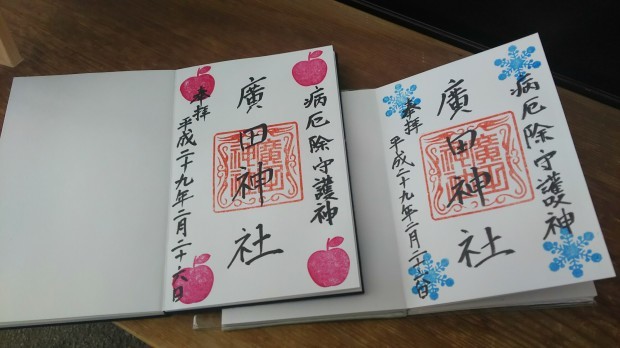 病厄除守護神
廣田神社
奉拝
平成二十九年二月二十六日
病厄除守護神
廣田神社
奉拝
平成二十九年二月二十六日